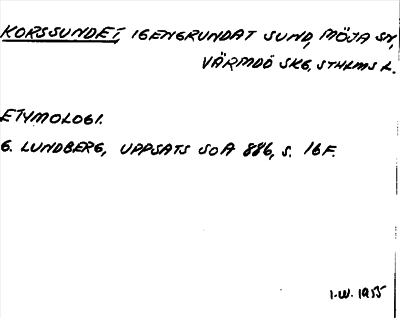 KORSSUNDET, IGENGRUNDAT SUND, MÖJA SN,
VÄRMDÖ SKG, STHLMS L.
ETYMOLOGI.
G. LUNDBERG, UPPSATS SOA 886, S. 16 F.
I.W. 1955